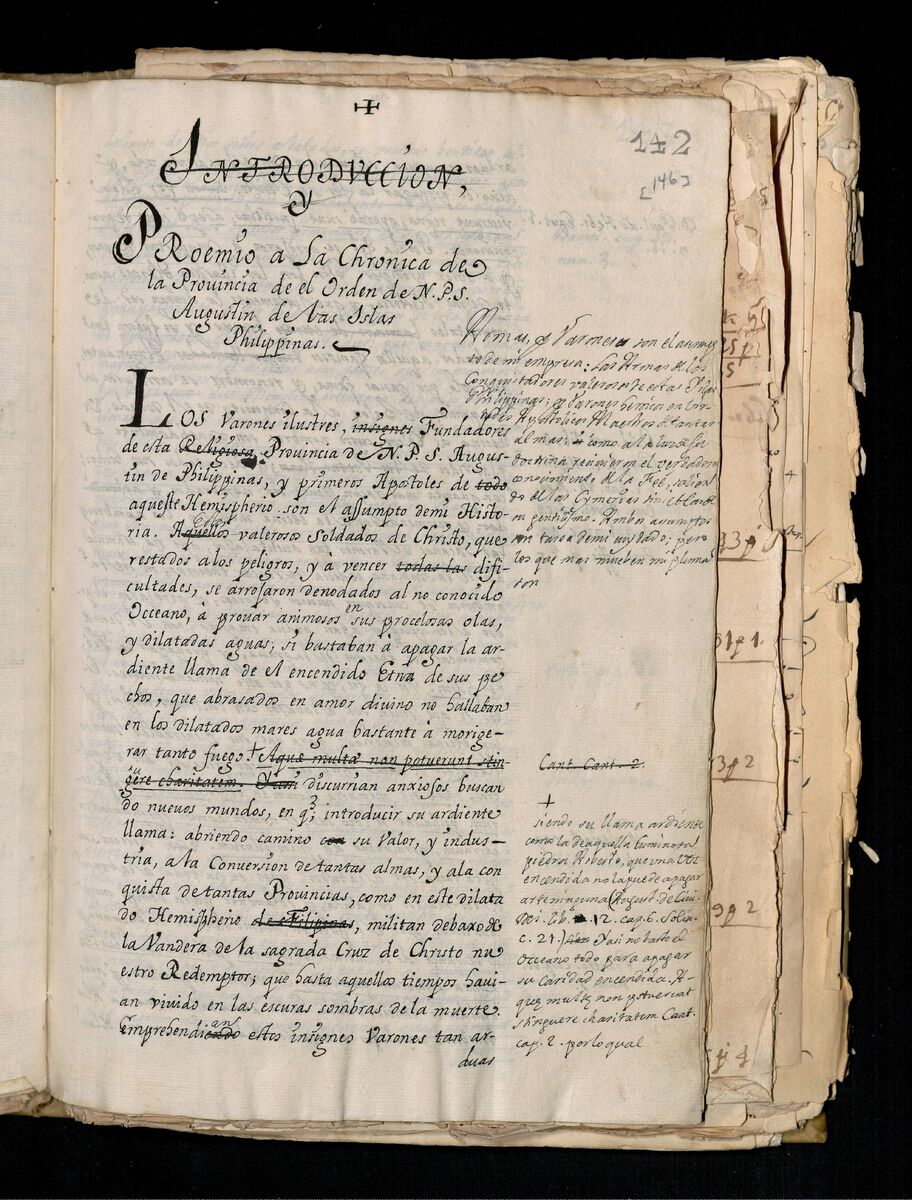 142
[146]
INTRODVCCION,
Y
PRoemio a La Chronica de
la Prouincia de el Orden de N.P.S.
Augustin de las Islas
Philippinas.
LOS Varones ilustres, insignes Fundadores
de esta Religiosa Provincia de N. P. S. Augus-
tin de Philippinas, y primeros Apostoles de todo
aqueste Hemispherio son el assumpto de mi Histo-
ria. Aquellos valerosos soldados de Christo, que
restados a los peligros, y à vencer todas las difi-
cultades, se arrojaron denodados al no conocido
Occeano, à provar animosos en sus procelosas olas,
y dilatadas aguas; si bastaban à apagar la ar-
diente llama de el encendido Etna de sus pe
chos, que abrasados en amor divino no hallaban
en los dilatados mares agua bastante à morige-
rar tanto fuego + Aquæ multæ non potuerunt stin-
guere charitatem. discurrian anxiosos buscan
do nuevos mundos, en q introducir su ardiente
llama: abriendo camino con su Valor, y indus-
tria, a la Conversion de tantas almas, y a la con
quista de tantas Provincias, como en este dilata
do Hemispherio de Filipinas, militan debaxo de
la Vandera de la sagrada Cruz de Christo nu
estro Redemptor; que hasta aquellos tiempos havi-
an vivido en las escuras sombras de la muerte.
estos insignes Varones tan ar-
duas
Armas, y Varones son el assump
to de mi empresa: las Armas de los
Conquistadores valerosos de estas Islas
Philippinas; y Varones heroicos en vir-
tudes Apostolicos Maestros de tantas
almas: como a la luz de su
doctrina reciuieron el verdadero
conocimiento de la Fee, salien
do de las
su gentilismo. Ambos assumptos
son tarea de mi cuydado; pero
los que mas mueben mi pluma
son
Cant. Cant. 2.
+
siendo su llama ardiente
como la de aquella luminosa
piedra Asbesto, que una vez
encendida no la puede apagar
arte ninguna (August. de Ciui.
Dei. lib. 12. cap. 6. Solin.
c. 21.) Y asi no basto el
Occeano todo para apagar
su caridad encendida. A-
quæ multæ non potuerunt
stinguere charitatem Cant.
cap. 2. por lo qual